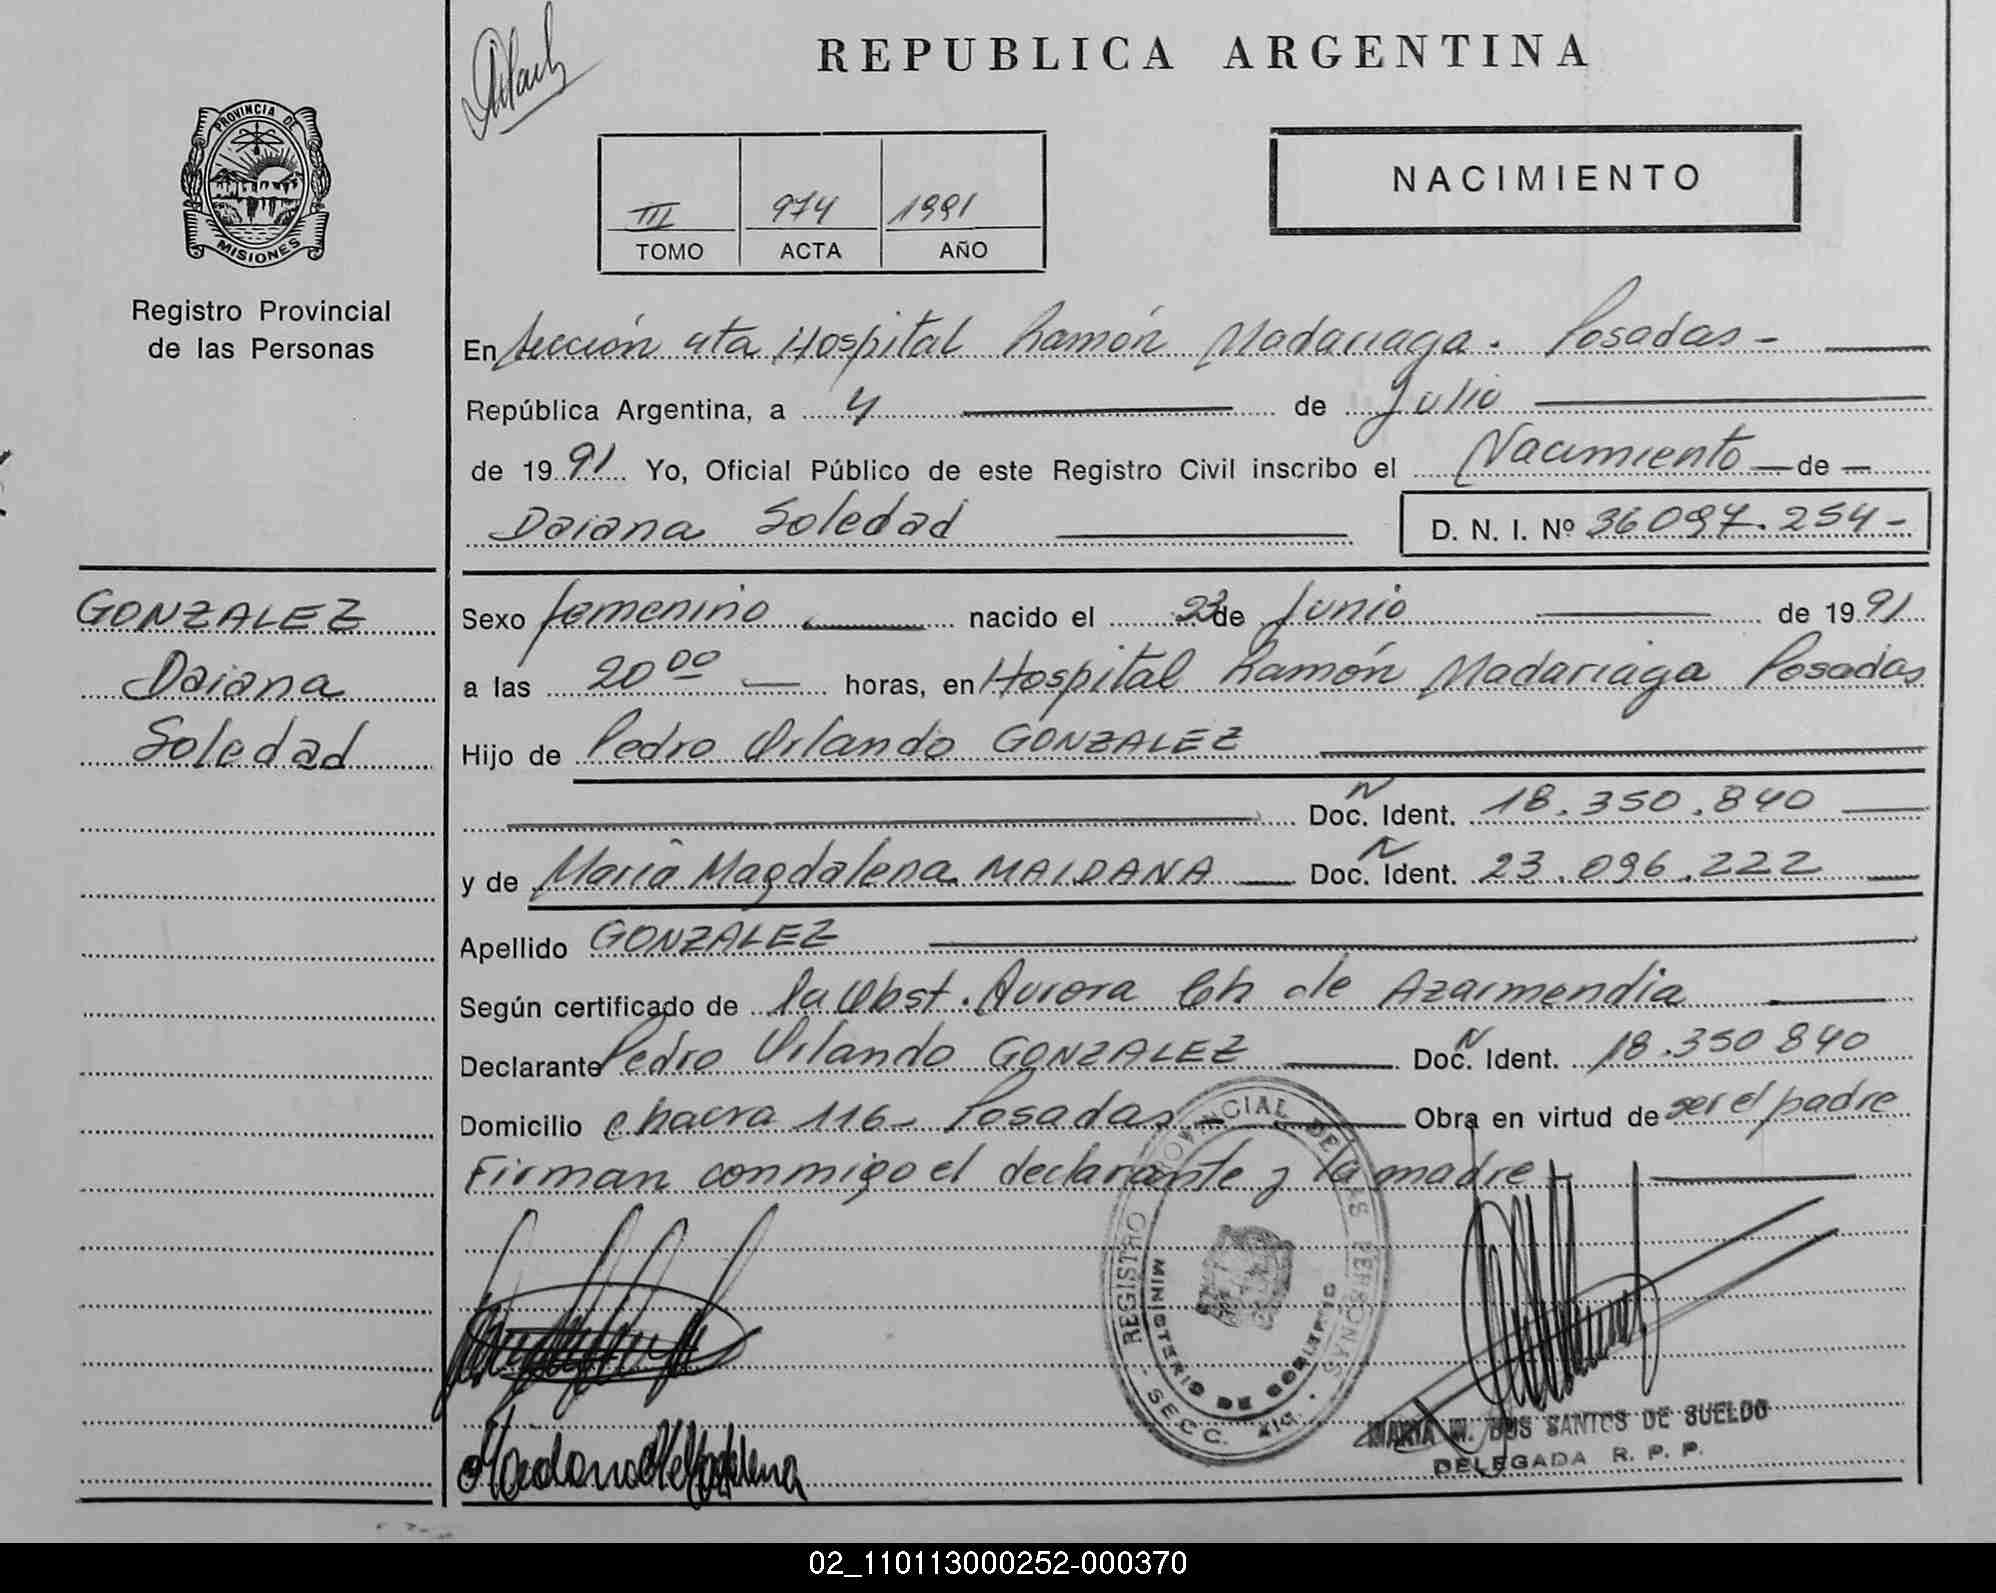 REPUBLICA ARGENTINA
PROVINCIA DE
MISIONES
Registro Provincial
de las Personas
III 974 1991
TOMO ACTA AÑO
NACIMIENTO
En Sección 4ta Hospital Ramón Madariaga. Posadas -
República Argentina, a 4 de Julio
de 1991 Yo, Oficial Público de este Registro Civil inscribo el Nacimiento de
Daiana Soledad D. N. I. Nº 36 097.254-
GONZALEZ
Daiana
Soledad
Sexo femenino nacido el 23 de Junio de 1991
a las 20 00 horas, en Hospital Ramón Madariaga Posadas
Hijo de Pedro Orlando GONZALEZ
N
Doc. Ident. 18.350.840
N
y de María Magdalena MAIDANA Doc. Ident. 23.096.222
Apellido GONZALEZ
Según certificado de la Obst. Aurora Ch de Azarmendia
N
Declarante Pedro Orlando GONZALEZ Doc. Ident. 18.350 840
Domicilio chacra 116- Posadas Obra en virtud de ser el padre
Firman conmigo el declarante y la madre
REGISTRO PROVINCIAL DE LAS PERSONAS
MINISTERIO DE GOBIERNO
SECC.
MARIA DOS SANTOS DE SUELDO
DELEGADA R. P. P.
02_110113000252-000370